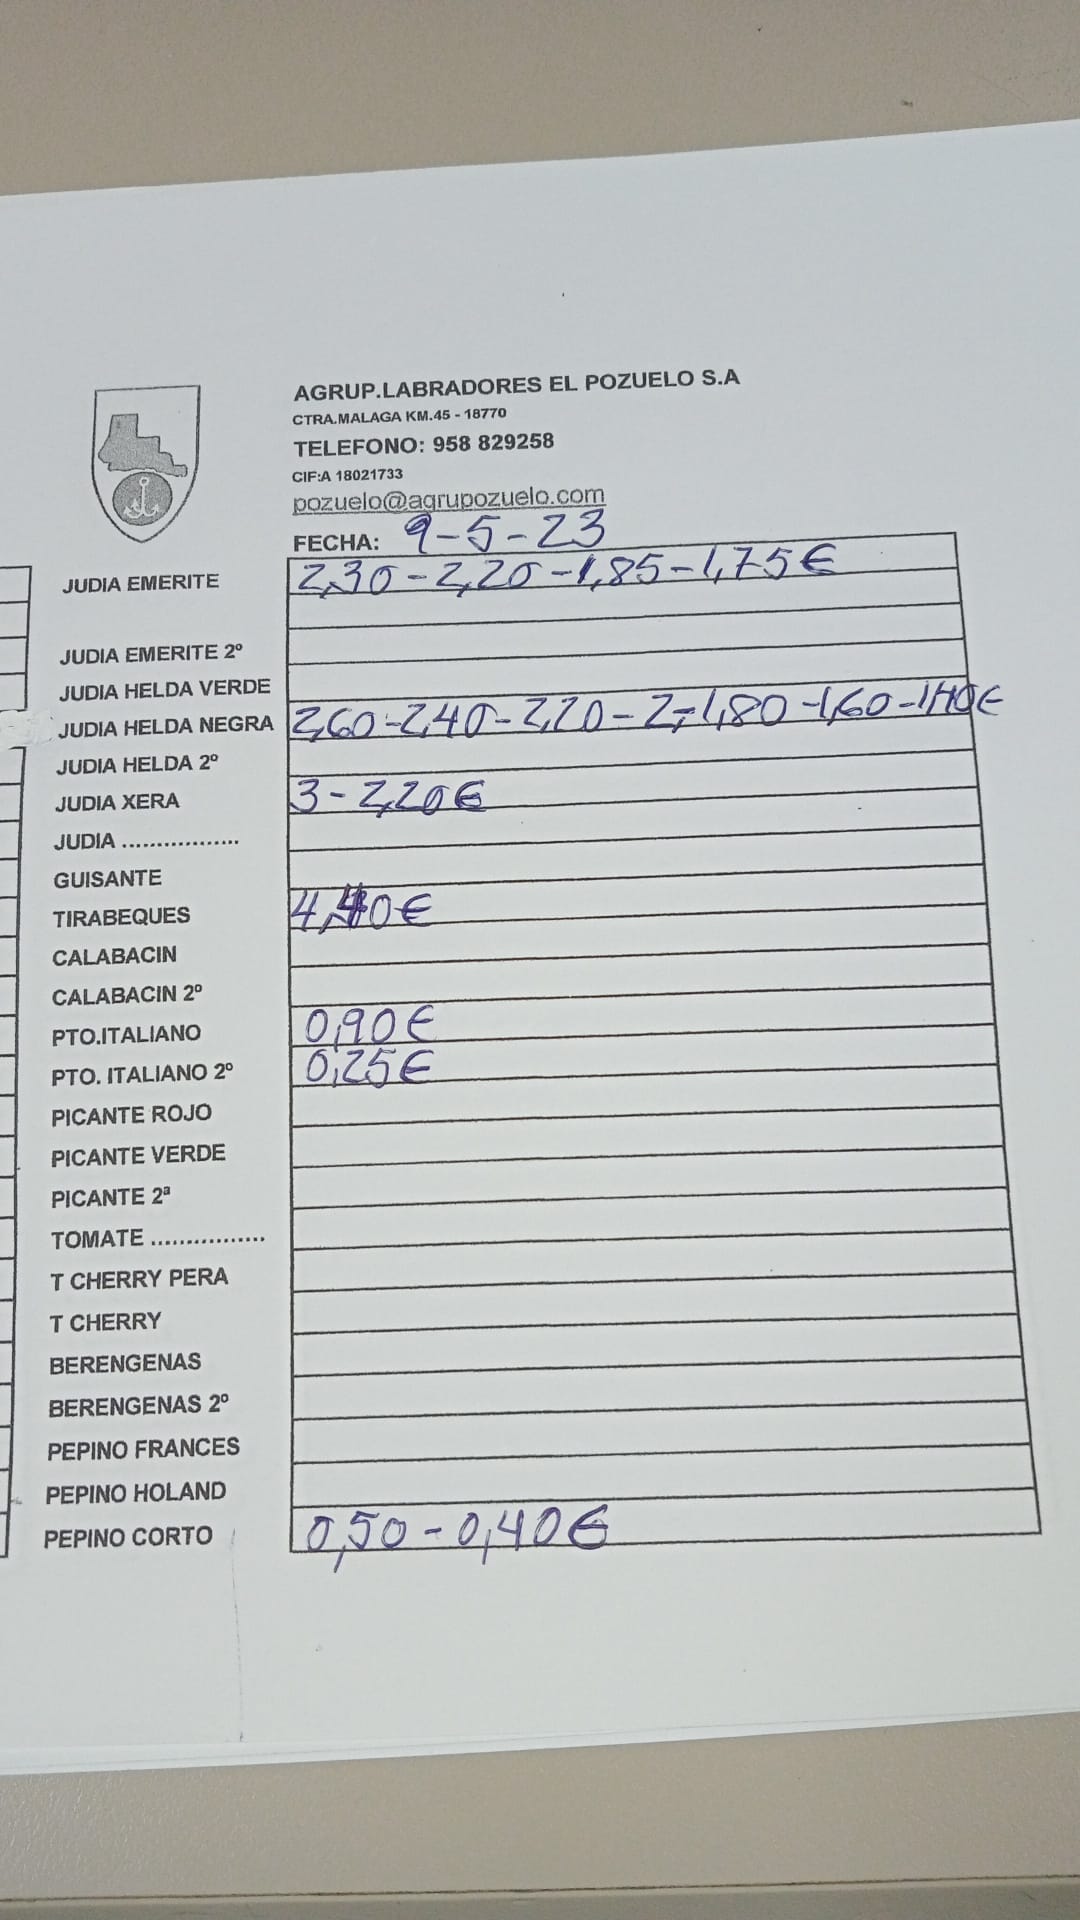 AGRUP.LABRADORES EL POZUELO S.A
CTRA.MALAGA KM.45 - 18770
TELEFONO: 958 829258
CIF:A 18021733
pozuelo@agrupozuelo.com
FECHA: 9-5-23
JUDIA EMERITE 2,30-2,20-1,85-1,75€
JUDIA EMERITE 2º
JUDIA HELDA VERDE
JUDIA HELDA NEGRA 2,60-2,40-2,20-2,-1,80-1,60-1,40€
JUDIA HELDA 2º
JUDIA XERA 3-2,20€
JUDIA .................
GUISANTE
TIRABEQUES 4,40€
CALABACIN
CALABACIN 2º
PTO.ITALIANO 0,90€
PTO. ITALIANO 2º 0,25€
PICANTE ROJO
PICANTE VERDE
PICANTE 2ª
TOMATE ................
T CHERRY PERA
T CHERRY
BERENGENAS
BERENGENAS 2º
PEPINO FRANCES
PEPINO HOLAND
PEPINO CORTO 0,50-0,40€